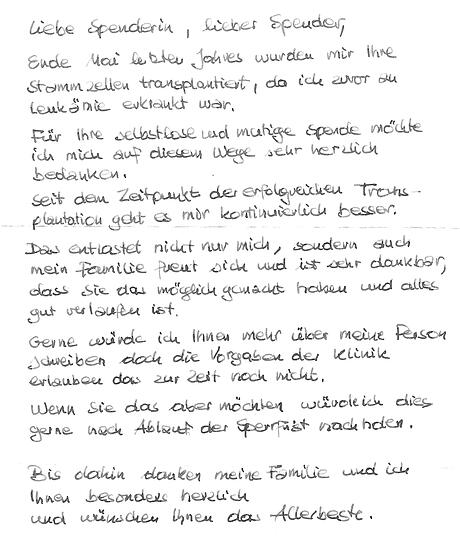 Liebe Spenderin, lieber Spender,
Ende Mai letzten Jahres wurden mir Ihre
Stammzellen transplantiert, da ich zuvor an
Leukämie erkrankt war.
Für Ihre selbstlose und mutige Spende möchte
ich mich auf diesem Wege sehr herzlich
bedanken.
Seit dem Zeitpunkt der erfolgreichen Trans-
plantation geht es mir kontinuierlich besser.
Das entlastet nicht nur mich, sondern auch
mein Familie freut sich und ist sehr dankbar,
dass Sie das möglich gemacht haben und alles
gut verlaufen ist.
Gerne würde ich Ihnen mehr über meine Person
schreiben doch die Vorgaben der Klinik
erlauben das zur Zeit noch nicht.
Wenn Sie das aber möchten würde ich dies
gerne nach Ablauf der Sperrfrist nachholen.
Bis dahin danken meine Familie und ich
Ihnen besonders herzlich
und wünschen Ihnen das Allerbeste.